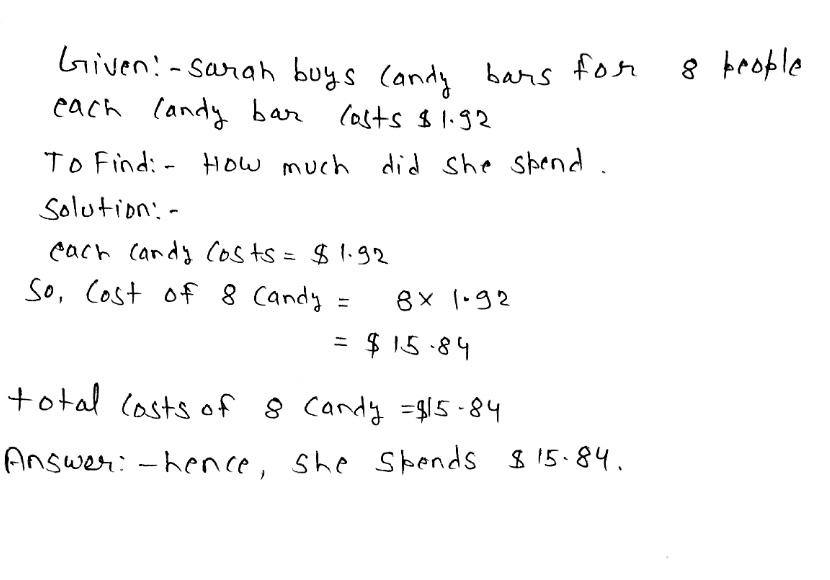 Given:- Sarah buys Candy bars for 8 people
each Candy bar Costs $1.92
To Find:- How much did she spend.
Solution:-
each Candy Costs = $1.92
So, Cost of 8 Candy = 8×1.92
= $15.84
total Costs of 8 Candy =$15.84
Answer:-hence, she spends $15.84.